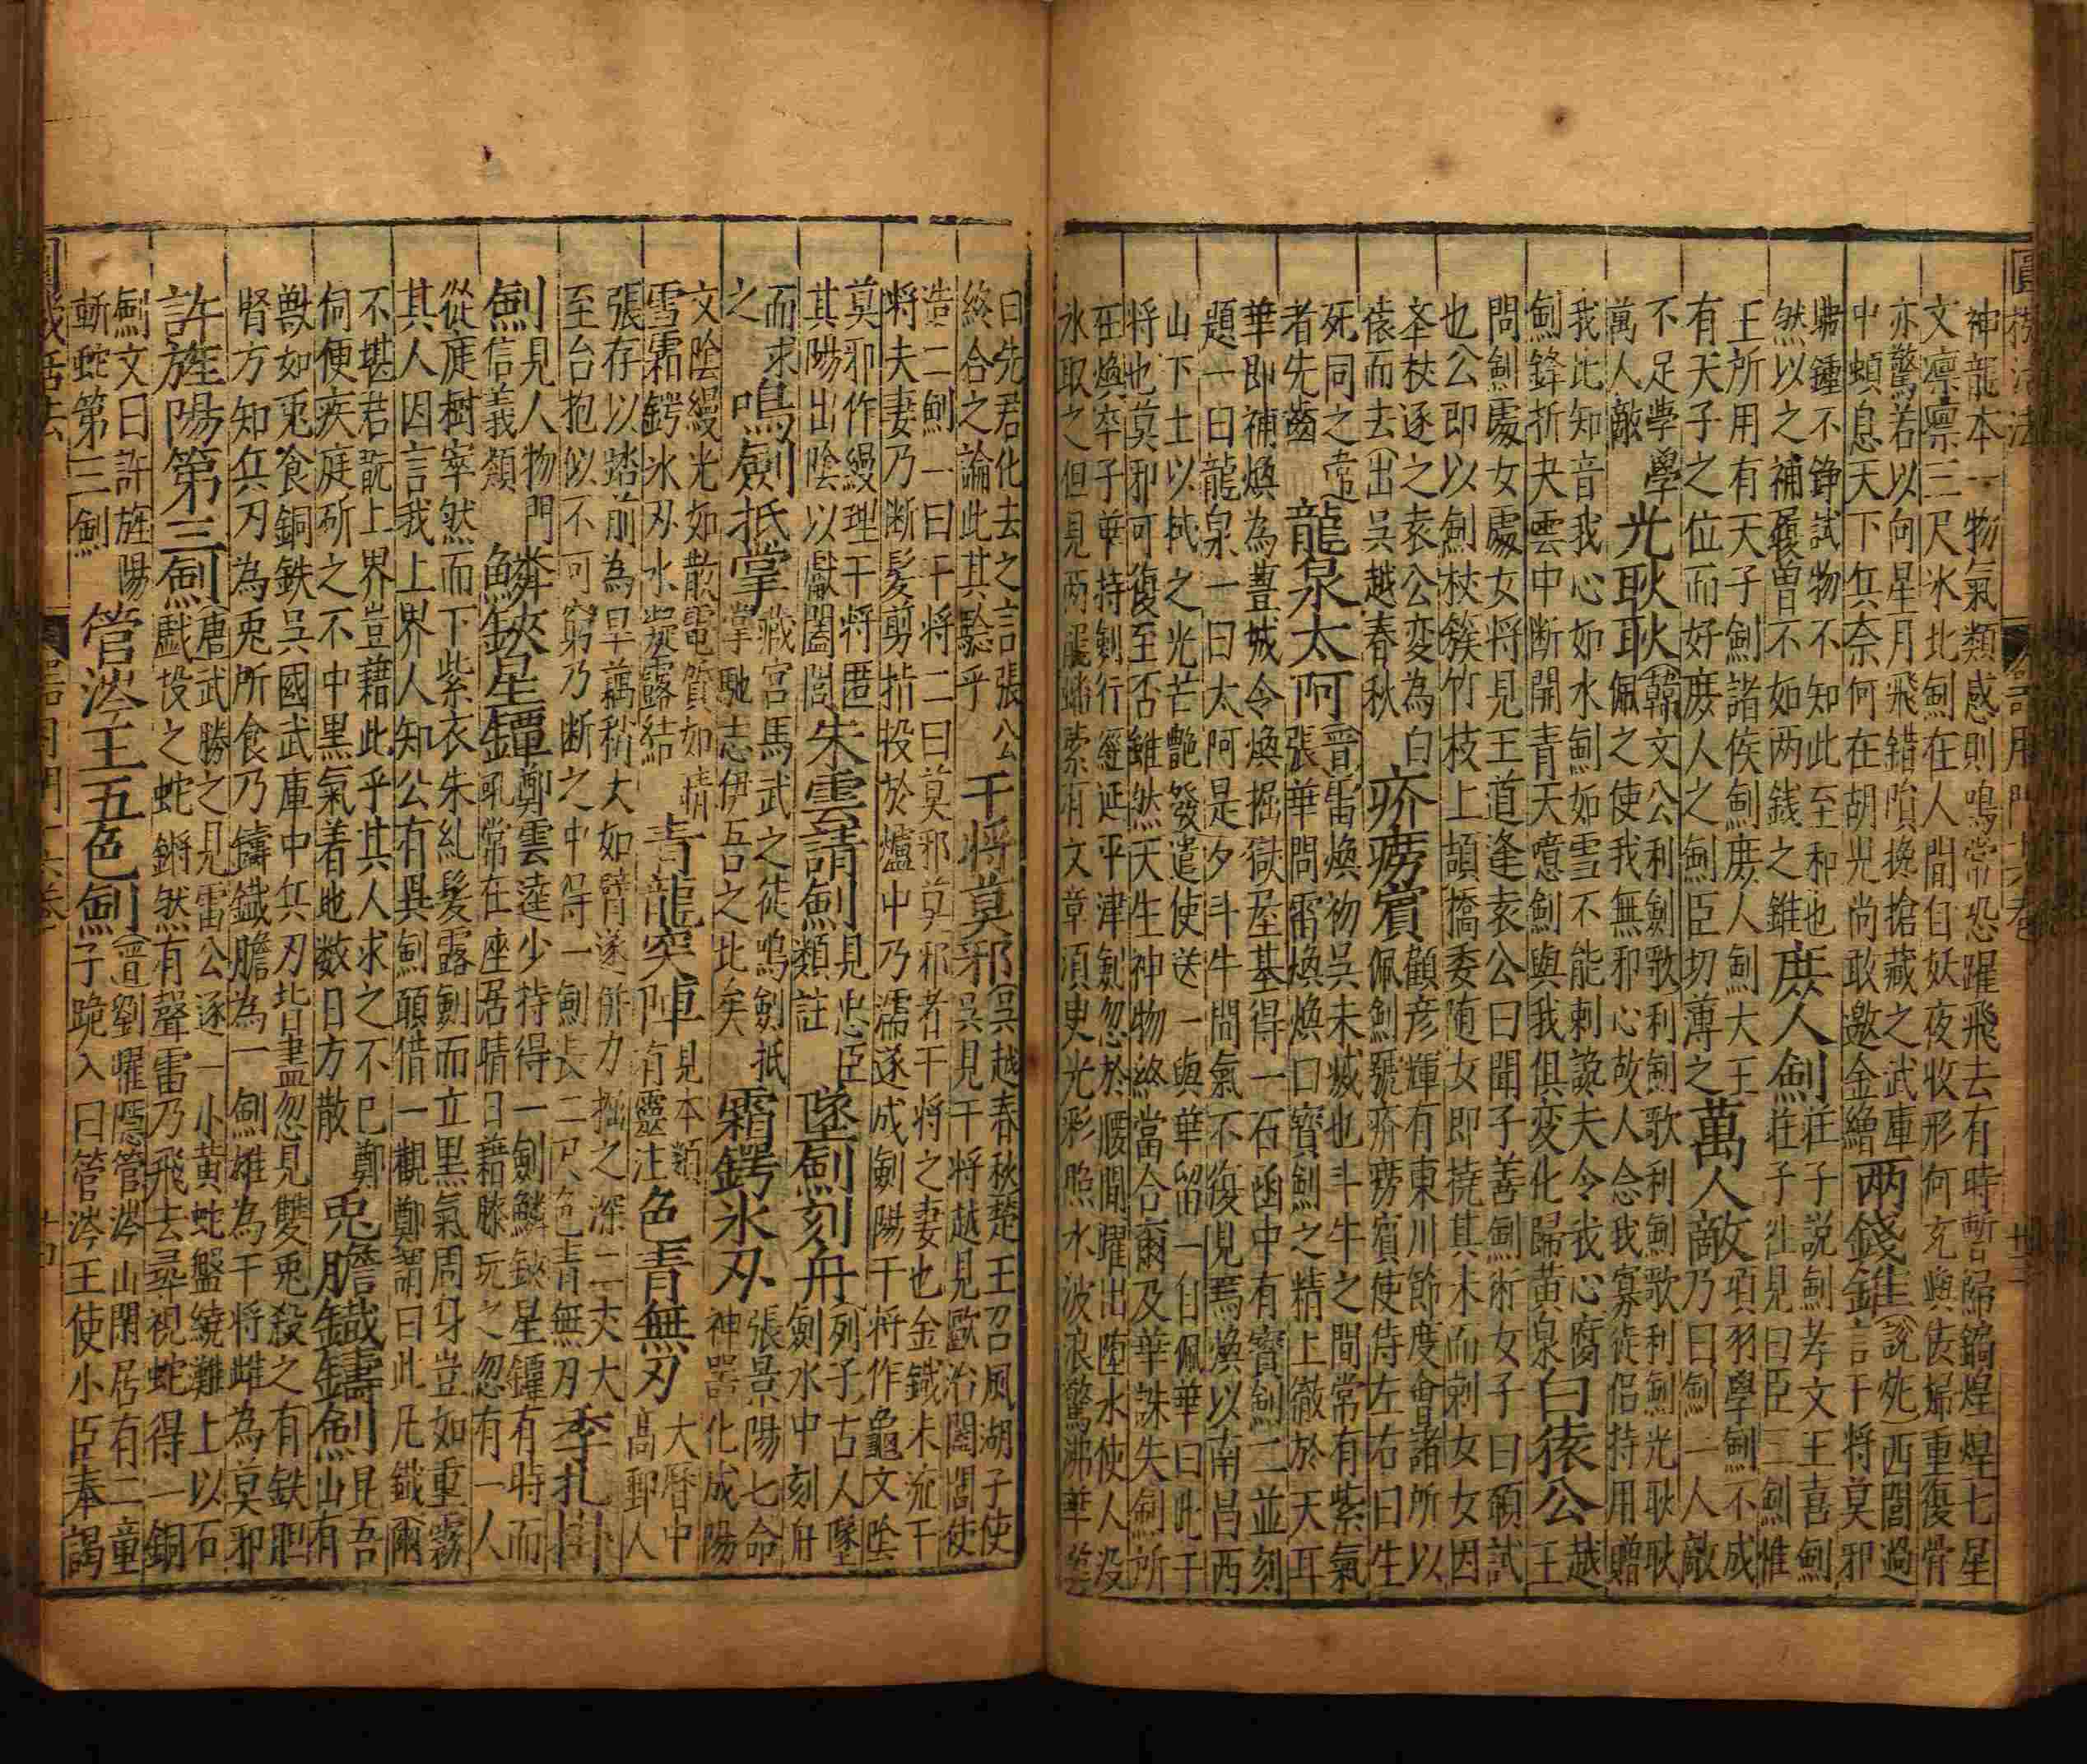 神龍本一物氣類感則鳴常恐躍飛去有時暫歸鎬煌煌七星
文凛凛三尺氷北劍在人間百妖夜收形何充與佞婦重復骨
亦驚若以向星月飛錯隕搀搶藏之武庫
中蝢息天下兵奈何在胡兠尚敢邀金繒
两錢錐
(說𫟪)西閭過
言干将莫邪
鐘不錚試物不知此至和也
然以之補履曽不如两錢之錐
庶人劍
莊子說劍孝文王喜劍
莊子徃見曰臣三劍惟
王所用有天子劍諸侯劍庶人劍大王
有天子之位而好庶人之劍臣切薄之
萬人敵
項羽學劍不成
乃曰劍一人敵
不足學學
萬人敵
光耿耿
(韓文公利劍歌利劍歌利劍歌利劍光耿耿
佩之使我無邪心故人念我寡徒侣持用贈
我比知音我心如水劍如雪不能刺讒夫令我心腐
劍鋒折夬雲中断開青天噫劍與我俱変化歸黄泉
白猿公
越
王
問劍處女處女將見王道逢袁公曰聞子善劍術女子曰願試
也公即以劍杖簇竹枝上頡橋委堕女即㨔其末而刺女女因
夲杖逐之袁公変為白
猿而去(出吳越春秋
疥癆賓
顧彦輝有東川節度會諸所以
佩劍號疥癆賓使侍左右曰生
死同之當
者先齒
龍泉太阿
(晋)雷煥初吳未㓕也斗牛之間常有紫氣
張華問雷煥煥曰寳劍之精上徹於天耳
華即補煥為豊城令煥掘獄基基得一石凾中有寳劍二並刻
題一曰龍泉一曰太阿是夕斗牛間氣不復見焉煥以南昌西
山下土以拭之光芒艶發遣使送一與華留一自佩華曰此于
将也莫邪可復至否雖然天生神物終當合爾及華誅失劍所
在煥卒子華持剣行經延平津剣忽於腰間躍出堕水使人没
氷取之但見两龍蟠縈有文章湏臾光彩照水波浪驚沸華嘆
曰先君化去之言張公
終合之論此其騐乎
干将莫邪
(吳越春秋楚王召風湖子使
吳見干将越見歐冶闔閭使
造二劍一曰干将二曰莫邪莫邪者干将之妻也金鐵未流干
将夫妻乃断髪剪指投於爐中乃濡遂成剣陽干将作龜文陰
莫邪作縵理干将匿
其陽出陰以獻闔閭
朱雲請劍
見忠臣
類註
墜劍刻舟
(列子)古人墜
剣水中刻舟
而求
之
鳴劍抵掌
藏宫馬武之徒鳴剣抵
掌馳志伊吾之北矣
霜鍔氷刃
張景陽七命
神噐化成陽
文陰縵光如散電質如晴
雪霜鍔氷刃水凝露結
青龍突陣
見本類
有靈注
色青無刃
大暦中
高郵人
張存以踏前為旱藕稍大如臂遂併力掘之深二丈大
至台抱似不可窮乃断之中得一劍長二尺色青無刃
季札樹
劍
見人物門
信義類
鱗鋏星鐔
鄭雲逵少持得一劍鱗鋏星鐔有時而
吼常在座居晴日藉膝玩之忽有一人
從庭樹宰然而下紫衣朱糺髪露劍而立黒氣周身豈如重霧
其人因言我上界人知公有異劍願借一觀鄭謂曰此凡鐵爾
不堪君翫上界豈藉此乎其人求之不已鄭
伺便疾庭斫之不中黒氣着地数日方散
兎膽鐡鑄劍
昆吾
山有
獸如兎食銅鉄吳國武庫中兵刃皆盡忽見雙兎殺之有鉄胆
腎方知兵刃為兎所食乃鑄鐡膽為一劍雄為干将雌為莫邪
許旌陽第三劍
唐武勝之見雷公逐一小黄蛇盤繞灘上以石
戱投之蛇鏘然有聲雷乃飛去尋視蛇得一銅
劍文曰許旌陽
斬蛇第三劍
管涔王五色劍
(晋)劉曜隱管涔山閑居有二童
子跪入曰管涔王使小臣奉謁